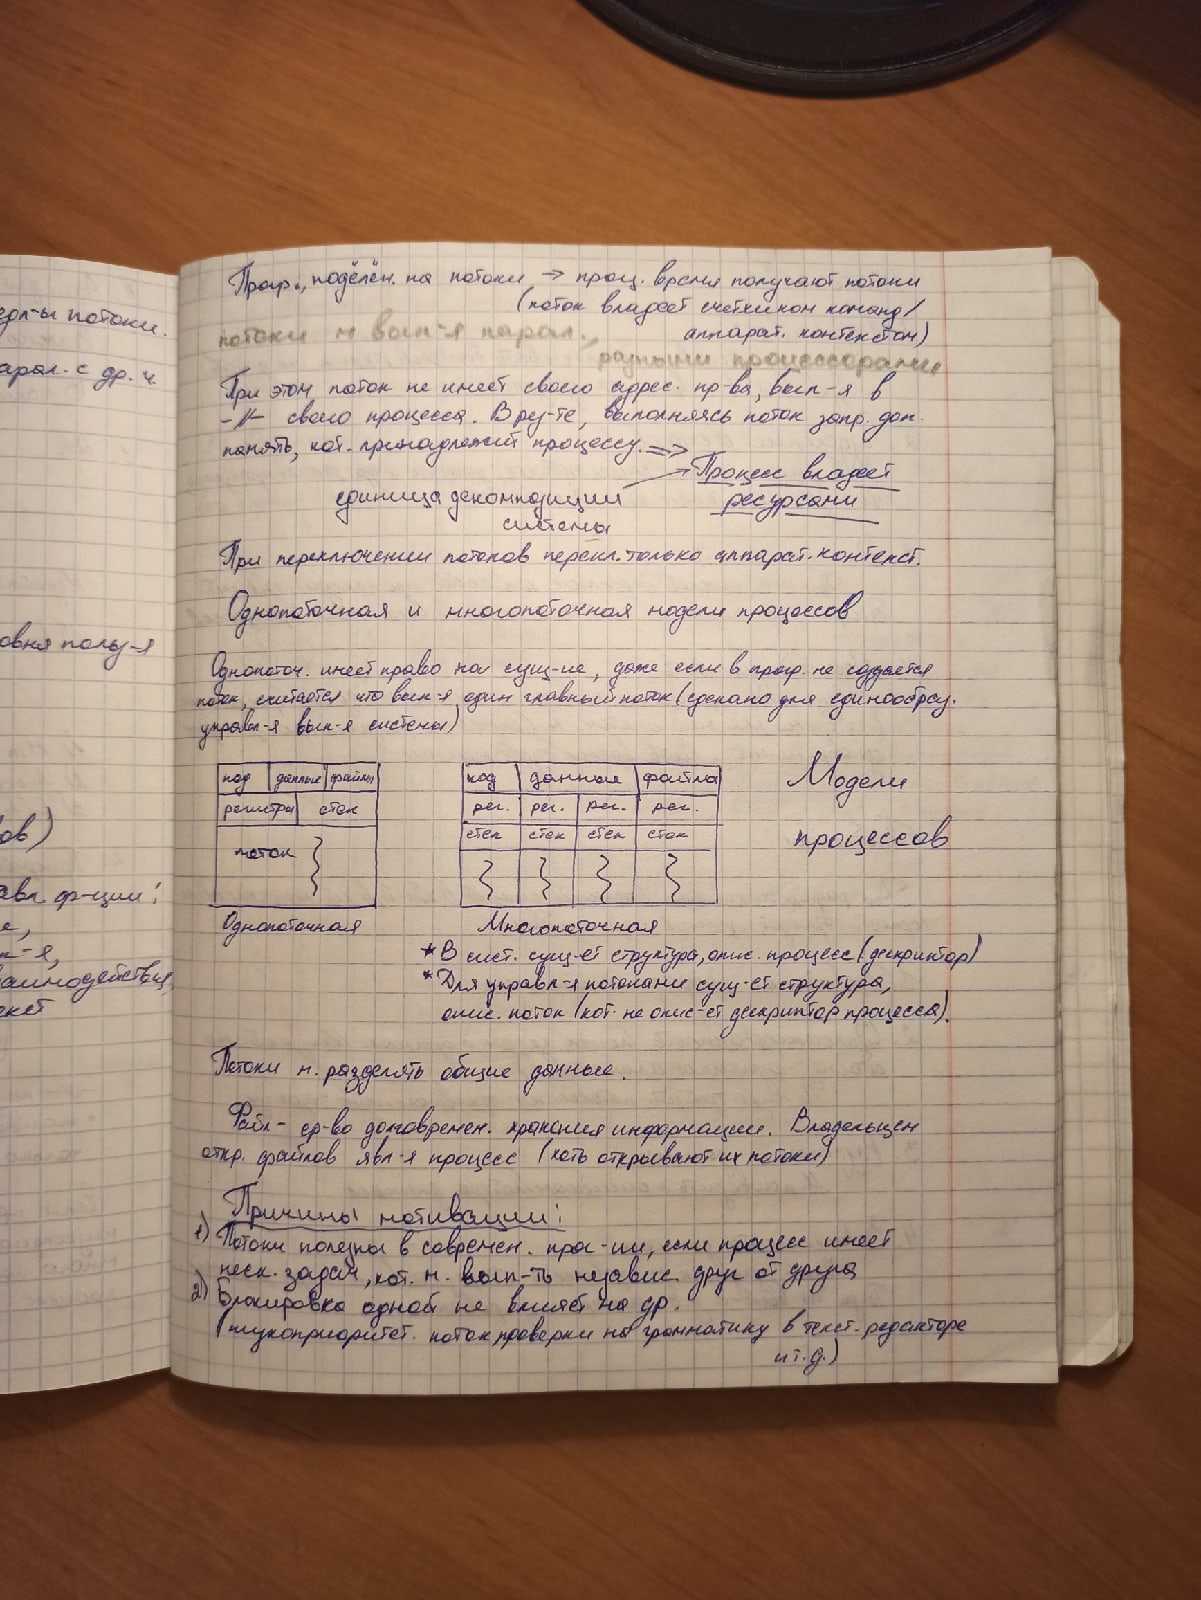 едл-ы потоки.
арал. с др. ч.
овня польз-я
ов)
авл. ф-ции:
е,
п-я,
аимодействия,
екст
Прогр., поделён. на потоки → проц. время получают потоки
(поток владеет счетчиком команд/
аппарат. контекстом)
потоки м вып-я парал.,
разными процессорами
При этом поток не имеет своего адрес. пр-ва, вып-я в
-//- своего процесса. В рез-те, выполняясь поток запр. доп.
память, кот. принадлежит процессу. =>
Процесс владеет
ресурсами
единица декомпозиции
системы
При переключении потоков перекл. только аппарат. контекст.
Однопоточная и многопоточная модели процессов
Однопоточ. имеет право на сущ-ие, даже если в прогр. не создается
поток, считается что вып-я один главный поток (сделано для единообраз.
управл-я вып-я системы)
код данные файлы
регистры стек
поток
Однопоточная
код данные файлы
рег. рег. рег. рег.
стек стек стек стек
Многопоточная
Модели
процессов
* В сист. сущ-ет структура, опис. процесс (дескриптор)
* Для управл-я потоками сущ-ет структура,
опис. поток (кот. не опис-ет дескриптор процесса).
Потоки м. разделять общие данные.
Файл - ср-во долговремен. хранения информации. Владельцем
откр. файлов явл-я процесс (хоть открывают их потоки)
Причины мотивации:
1) Потоки полезны в современ. прог-ии, если процесс имеет
неск. задач, кот. м. вып-ть независ. друг от друга
2) Блокировка одной не влияет на др.
(низкоприоритет. поток проверки на грамматику в текст. редакторе
и т.д.)